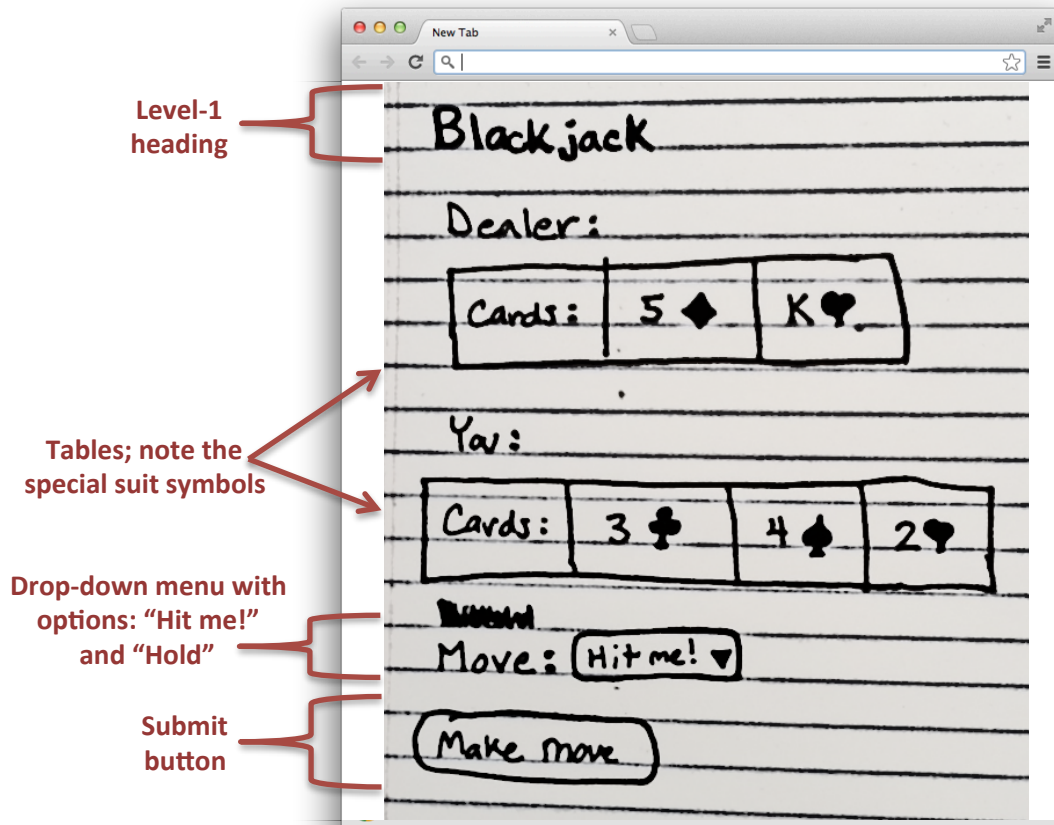 New Tab
Level-1
heading
Blackjack
Dealer:
Cards: 5 ♦ K ♥
Tables; note the
special suit symbols
You:
Cards: 3 ♣ 4 ♠ 2 ♥
Drop-down menu with
options: “Hit me!”
and “Hold”
Move: Hit me! ▼
Submit
button
Make move